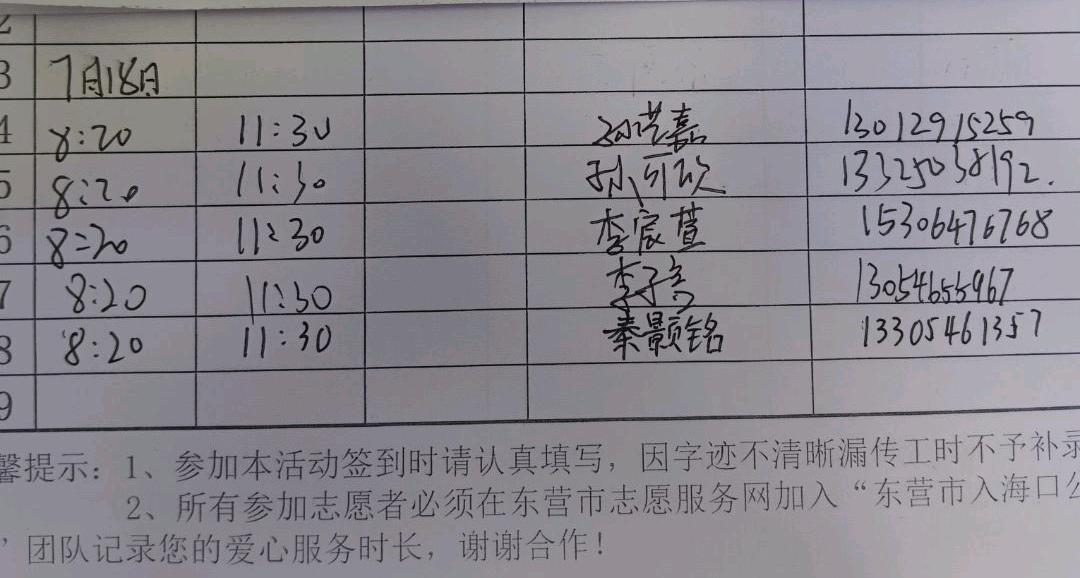 2
3 7月18日
4 8:20 11:30 孙洪嘉 13012915259
5 8:20 11:30 孙可欣 13325038192.
6 8:20 11:30 李宸萱 15306476768
7 8:20 11:30 李子 13054655967
8 8:20 11:30 秦颢铭 13305461357
9
馨提示：1、参加本活动签到时请认真填写，因字迹不清晰漏传工时不予补录
2、所有参加志愿者必须在东营市志愿服务网加入“东营市入海口公
”团队记录您的爱心服务时长，谢谢合作！